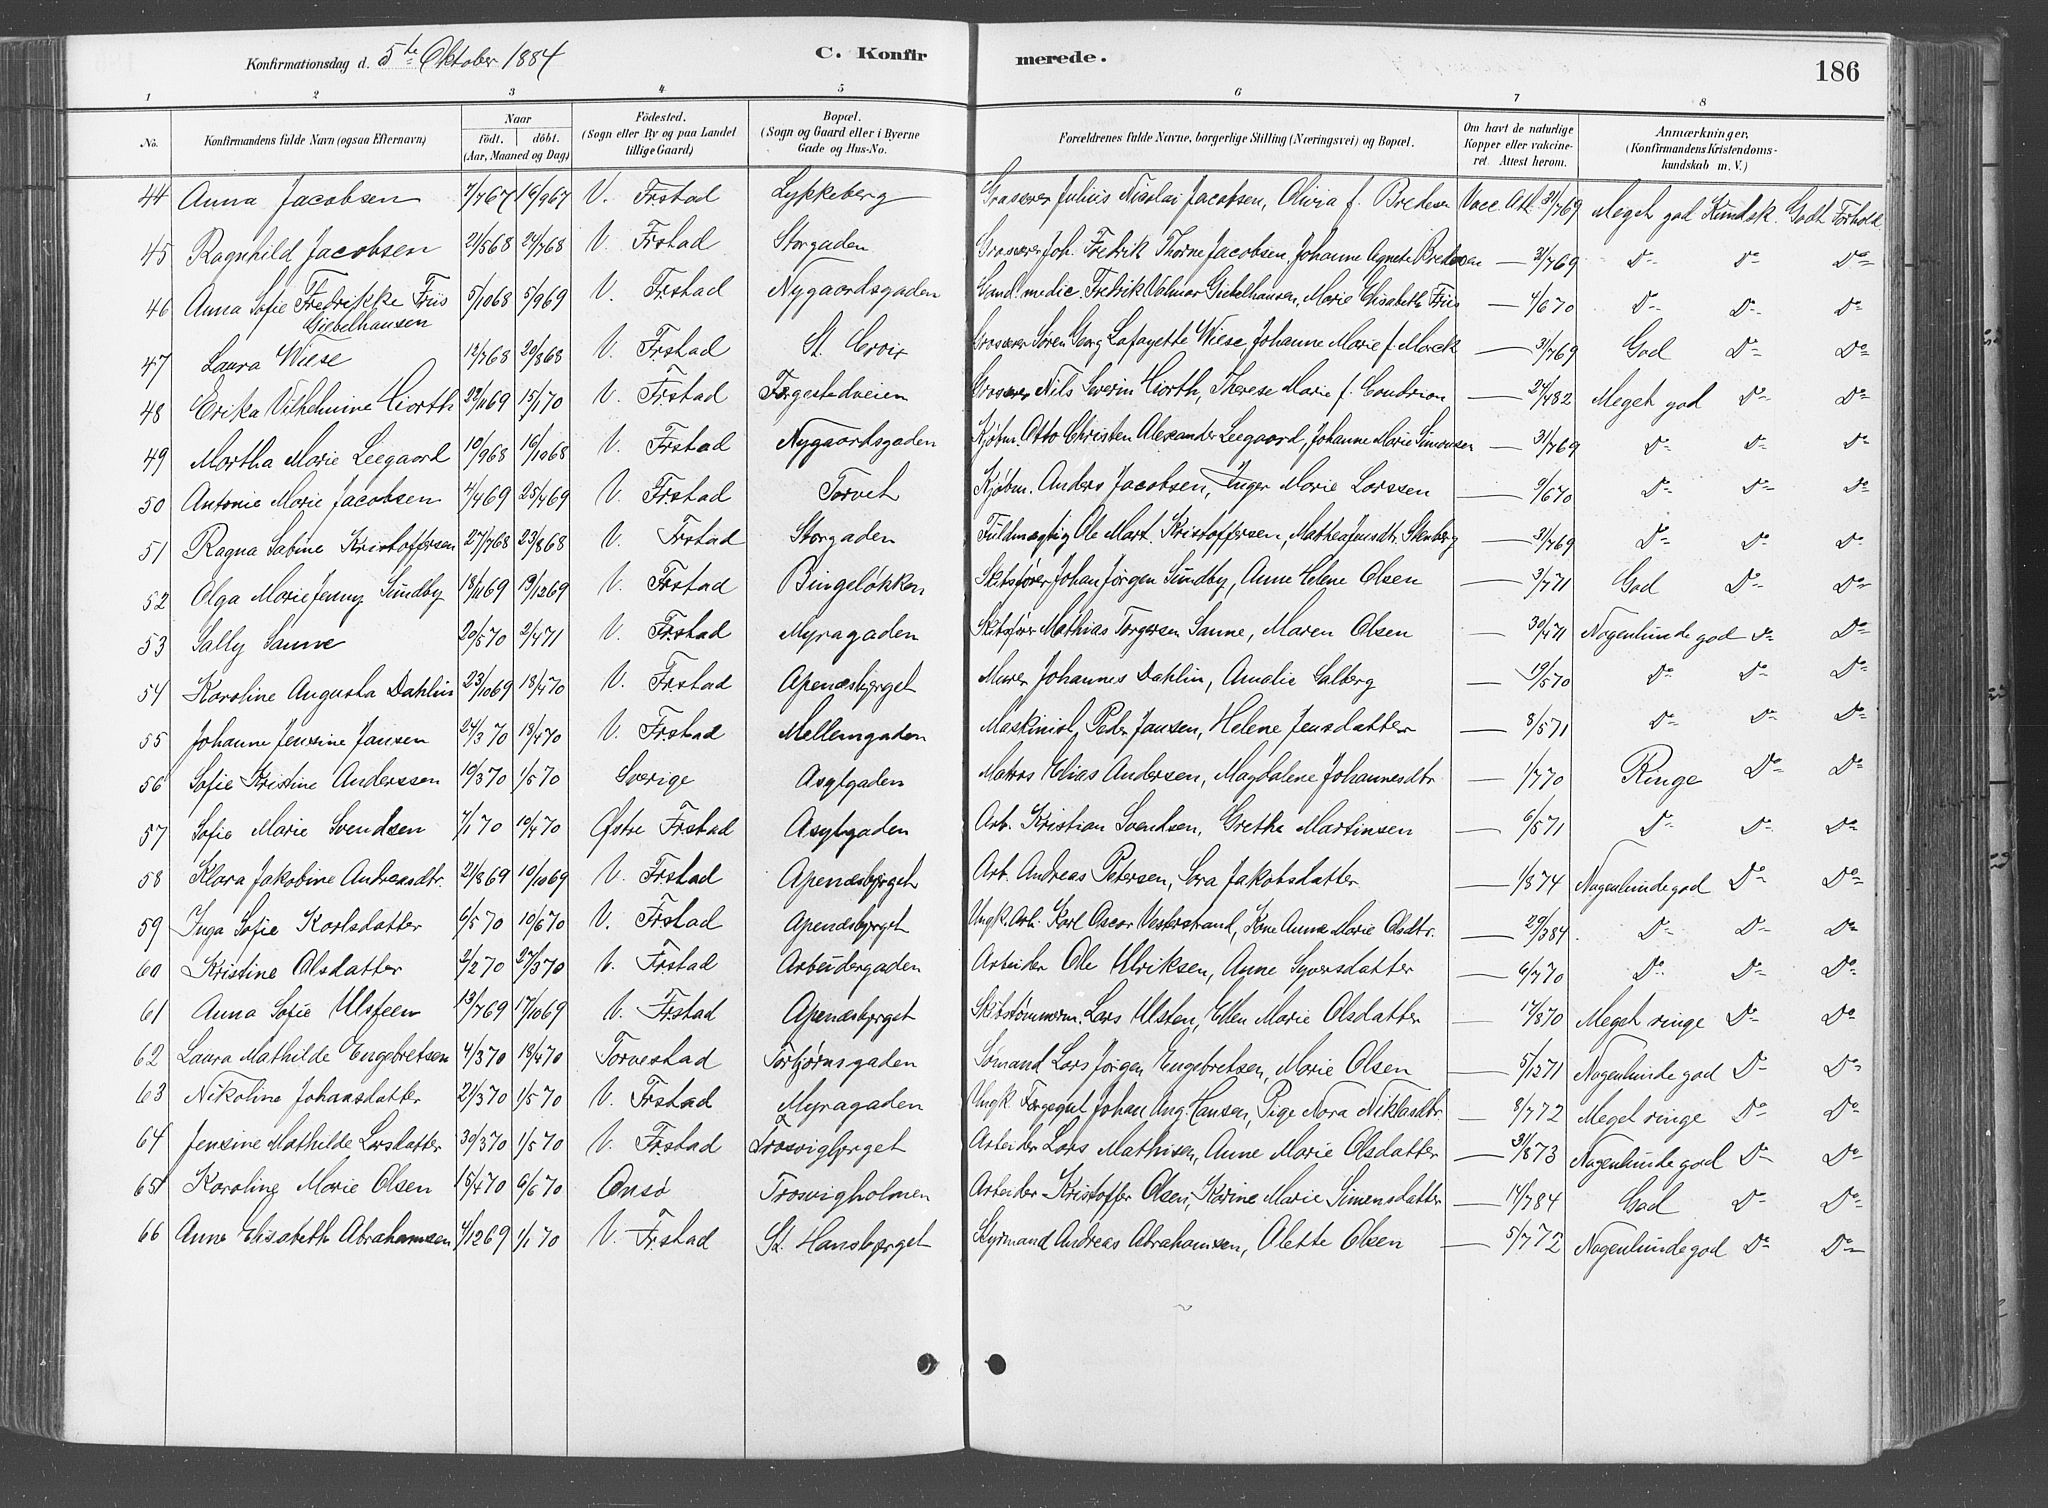 Konfirmationsdag d. 5te Oktober 1884 C. Konfirmerede. 186
1 2 3 4 5 6 7 8
No. Konfirmandens fulde Navn (ogsaa Efternavn) Naar födt. döbt. (Aar, Maaned og Dag) Födested. (Sogn eller By og paa Landet tillige Gaard.) Bopæl. (Sogn og Gaard eller i Byerne Gade og Hus-No. Forældrenes fulde Navne, borgerlige Stilling (Næringsvei) og Bopæl. Om havt de naturlige Kopper eller vakcineret. Attest herom. Anmærkninger. (Konfirmandens Kristendomskundskab m. V.)
44 Anna Jacobsen 7/767 16/967 V. Frstad Lykkeberg Grosserer Julius Nicolai Jacobsen, Olivia f. Bredesen Vacc. Att. 31/769 Meget god Kundsk. Godt Forhold
45 Ragnhild Jacobsen 21/568 24/768 V. Frstad Storgaden Grosserer Joh. Fredrik Thorne Jacobsen, Johanne Agnete Bredesen — 31/769 Do Do Do
46 Anna Sofie Fredrikke Friis Giebelhausen 5/1068 5/969 V. Frstad Nygaardsgaden Cand. medic. Fredrik Volmar Giebelhausen, Marie Elisabeth Friis — 4/670 Do Do Do
47 Laura Wiese 12/768 20/868 V. Frstad St. Croix Grosserer Søren Georg Lafayette Wiese, Johanne Marie f. Morck — 31/769 God Do Do
48 Erika Vilhelmine Hiorth 22/1169 15/170 V. Frstad Færgestedveien Grosserer Nils Severin Hiorth, Therese Marie f. Coudrion — 24/482 Meget god Do Do
49 Martha Marie Leegaard 10/968 16/1068 V. Frstad Nygaardsgaden Kjøbm. Otto Christen Alexander Leegaard, Johanne Marie Simonsen — 31/769 Do Do Do
50 Antonie Marie Jacobsen 4/469 25/469 V. Frstad Torvet Kjøbm. Anders Jacobsen, Inger Marie Larssen — 9/670 Do Do Do
51 Ragna Sabine Kristoffersen 27/768 23/868 V. Frstad Storgaden Fuldmægtig Ole Mart. Kristoffersen, Mathea Jensdtr. Stenberg — 31/769 Do Do Do
52 Olga Marie Jenny Sundby 18/1169 19/1269 V. Frstad Bingeløkken Skibsfører Johan Jørgen Sundby, Anne Helene Olsen — 3/771 God Do Do
53 Sally Sanne 20/570 2/471 V. Frstad Myragaden Skibsfører Mathias Torgersen Sanne, Maren Olsen — 30/471 Nogenlunde god Do Do
54 Karoline Augusta Dahlin 23/1069 18/470 V. Frstad Apenæsbjerget Murer Johannes Dahlin, Amalie Salberg — 19/570 Do Do Do
55 Johanne Jensine Jansen 24/370 18/470 V. Frstad Mellemgaden Maskinist Peder Jansen, Helene Jensdatter — 8/571 Do Do Do
56 Sofie Kristine Anderssen 19/370 1/570 Sverige Asylgaden Matros Elias Andersen, Magdalene Johannesdtr — 1/770 Ringe Do Do
57 Sofie Marie Svendsen 7/170 10/470 Østre Frstad Asylgaden Arb. Kristian Svendsen, Grethe Martinsen — 6/571 Do Do Do
58 Klara Jakobine Andreasdtr. 21/869 10/1069 V. Frstad Apenæsbjerget Arb. Andreas Petersen, Sara Jakobsdatter — 1/874 Nogenlunde god Do Do
59 Inga Sofie Karlsdatter 6/570 10/670 V. Frstad Apenæsbjerget Ungk. Arb. Karl Oscar Vesterstrand, Kone Anna Marie Olsdtr. — 29/384 Do Do Do
60 Kristine Olsdatter 2/270 27/370 V. Frstad Arbeidergaden Arbeider Ole Ulriksen, Anne Syversdatter — 6/770 Do Do Do
61 Anna Sofie Ulsteen 13/769 17/1069 V. Frstad Apenæsbjerget Skibstømmerm. Lars Ulsten, Ellen Marie Olsdatter — 17/870 Meget ringe Do Do
62 Laura Mathilde Engebretsen 4/370 18/470 Torvestad Torbjørnsgaden Sømand Lars Jørgen Engebretsen, Marie Olsen — 5/1271 Nogenlunde god Do Do
63 Nikoline Johansdatter 21/370 1/570 V. Frstad Myragaden Ungk. Færgegut Johan Aug. Hansen, Pige Nora Niklasdtr. — 8/772 Meget ringe Do Do
64 Jensine Mathilde Larsdatter 30/370 1/570 V. Frstad Trosvigbjerget Arbeider Lars Mathisen, Anne Marie Olsdatter — 31/873 Nogenlunde god Do Do
65 Karoline Marie Olsen 15/470 6/670 Onsø Trosvigholmen Arbeider Kristoffer Olsen, Karine Marie Simensdatter — 14/784 God Do Do
66 Anne Elisabeth Abrahamsen 4/1269 1/170 V. Frstad St. Hansbjerget Styrmand Andreas Abrahamsen, Olette Olsen — 5/772 Nogenlunde god Do Do